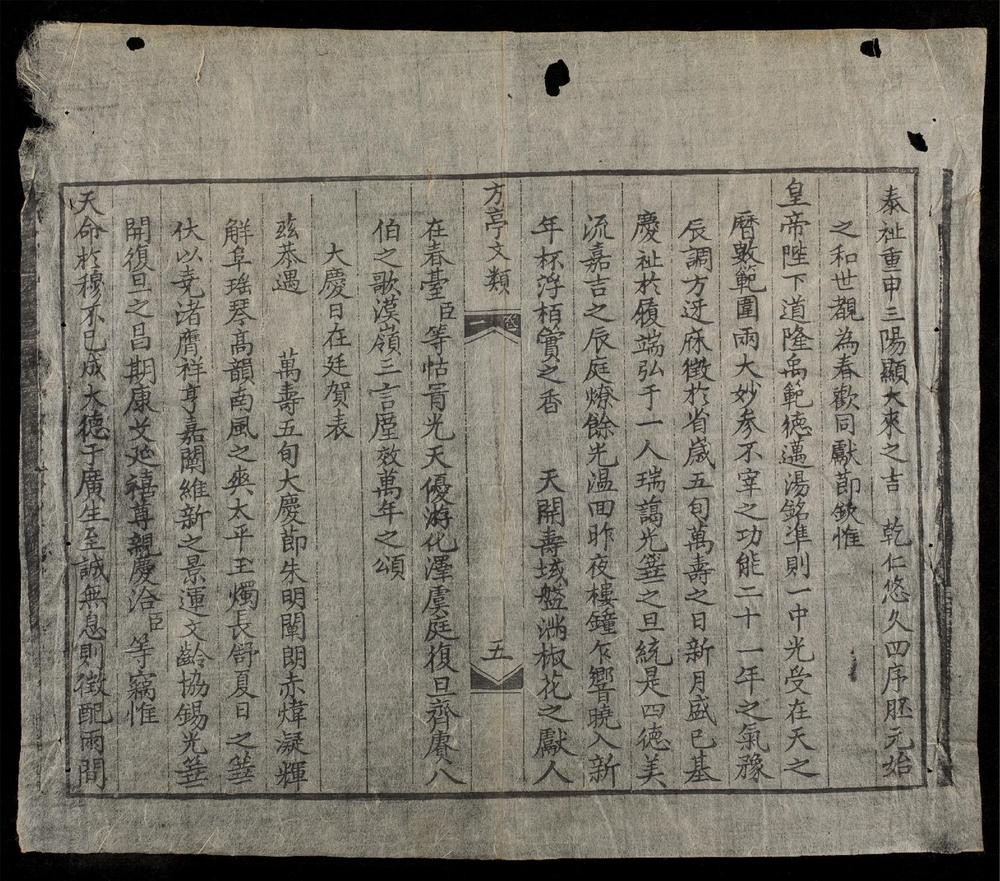 泰祉重申三陽顯大來之吉 乾仁悠久四序胚元始
之和世覩為春歡同獻節欽惟
皇帝陛下道隆禹範德邁湯銘準則一中光受在天之
曆數範圍兩大妙參不宰之功能二十一年之氣豫
辰調方迓庥徵於省歲五旬萬壽之日新月盛已基
慶祉於履端弘于一人瑞藹光華之旦統是四德美
流嘉吉之辰庭燎餘光温回昨夜樓鐘乍響曉入新
年杯浮栢實之香 天開壽域艦滿椒花之獻人
方亭文類 卷一 五
在春臺臣等怙冐光天優游化澤虞庭復旦齊賡八
伯之歌漢嶺三言歷效萬年之頌
大慶日在廷賀表
玆恭遇 萬壽五旬大慶節朱明闡朗赤煒凝輝
觧阜瑤琴髙韻南風之奭太平玉燭長舒夏日之華
伏以堯渚膺祥亨嘉闡維新之景運文齡協錫光華
開復旦之昌期康文延禧尊親慶洽臣等竊惟
天命於穆不已成大德于廣生至誠無息則徵配兩間